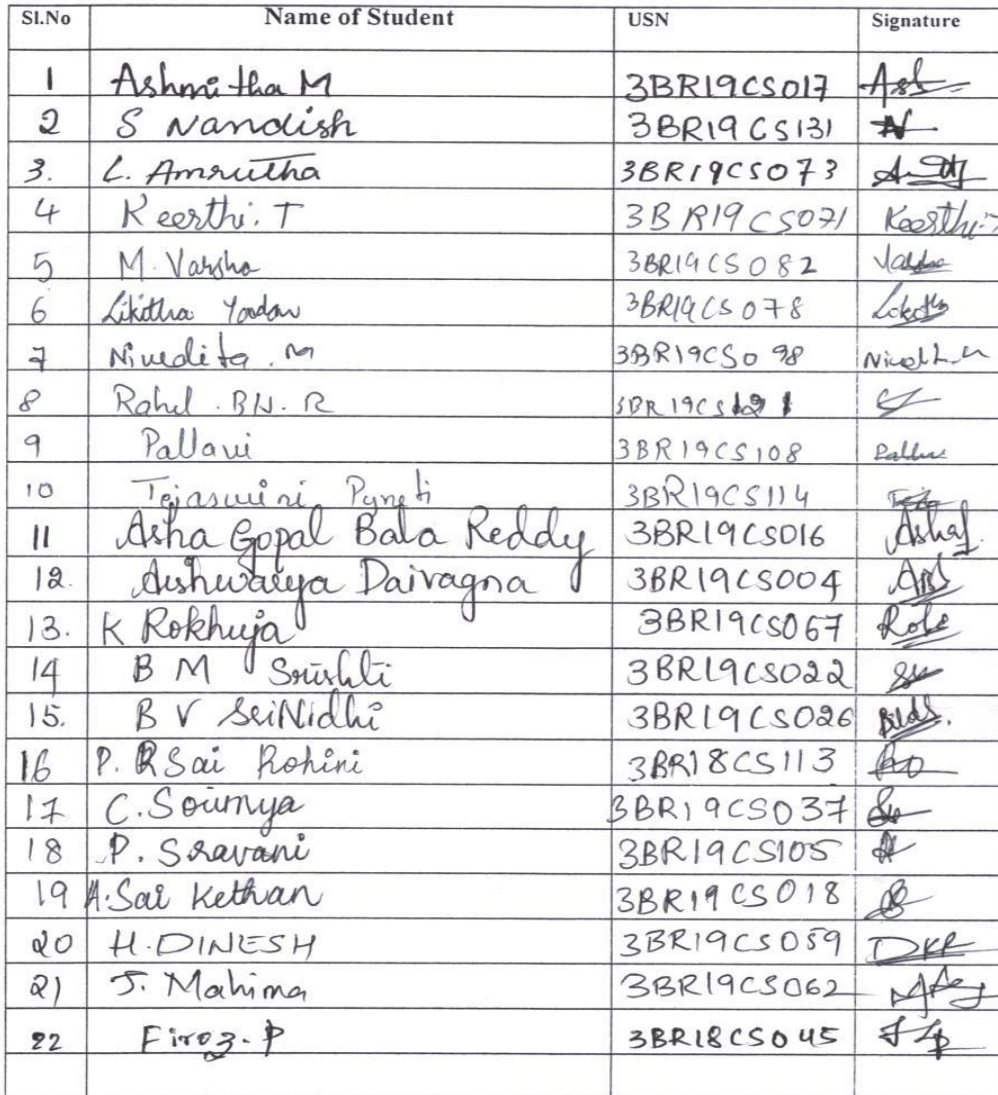 Sl.No Name of Student USN Signature
1 Ashmitha M 3BR19CS017
2 S Nandish 3BR19CS131
3. L. Amrutha 3BR19CS073
4 Keerthi. T 3BR19CS071 Keerthi.T
5 M. Varsha 3BR19CS082
6 Likitha Yadav 3BR19CS078
7 Nivedita . M 3BR19CS098
8 Rahul . BN. R 3BR19CS121
9 Pallavi 3BR19CS108
10 Tejaswini 3BR19CS114
11 Asha Gopal Bala Reddy 3BR19CS016
12. Aishwarya Daivagna 3BR19CS004
13. K Rokhuja 3BR19CS067
14 B M Srishti 3BR19CS022
15. B V SriNidhi 3BR19CS026
16 P. R Sai Rohini 3BR18CS113
17 C. Soumya 3BR19CS037
18 P. Sravani 3BR19CS105
19 A. Sai Kethan 3BR19CS018
20 H. DINESH 3BR19CS059
21 J. Mahima 3BR19CS062
22 Firoz. P 3BR18CS045